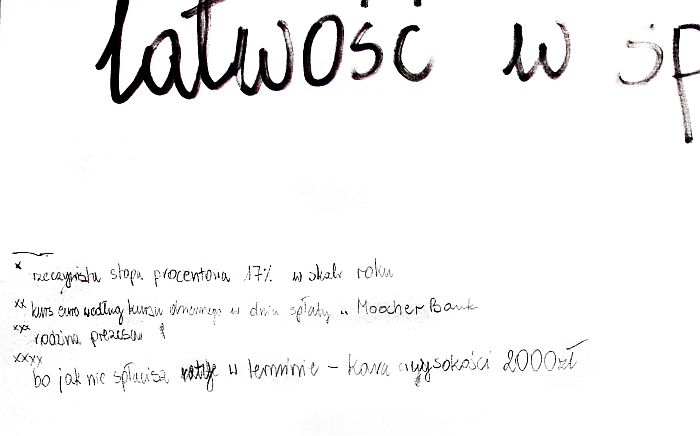 łatwość w sp
* rzeczywista stopa procentowa 17% w skali roku
** kurs euro według kursu dziennego w dniu spłaty w Moocher Bank
*** rodzina prezesa
**** bo jak nie spłacisz w terminie - kara wysokości 2000zł